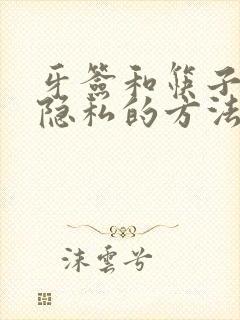 牙簽和筷子
隐私的方法
沫雲兮